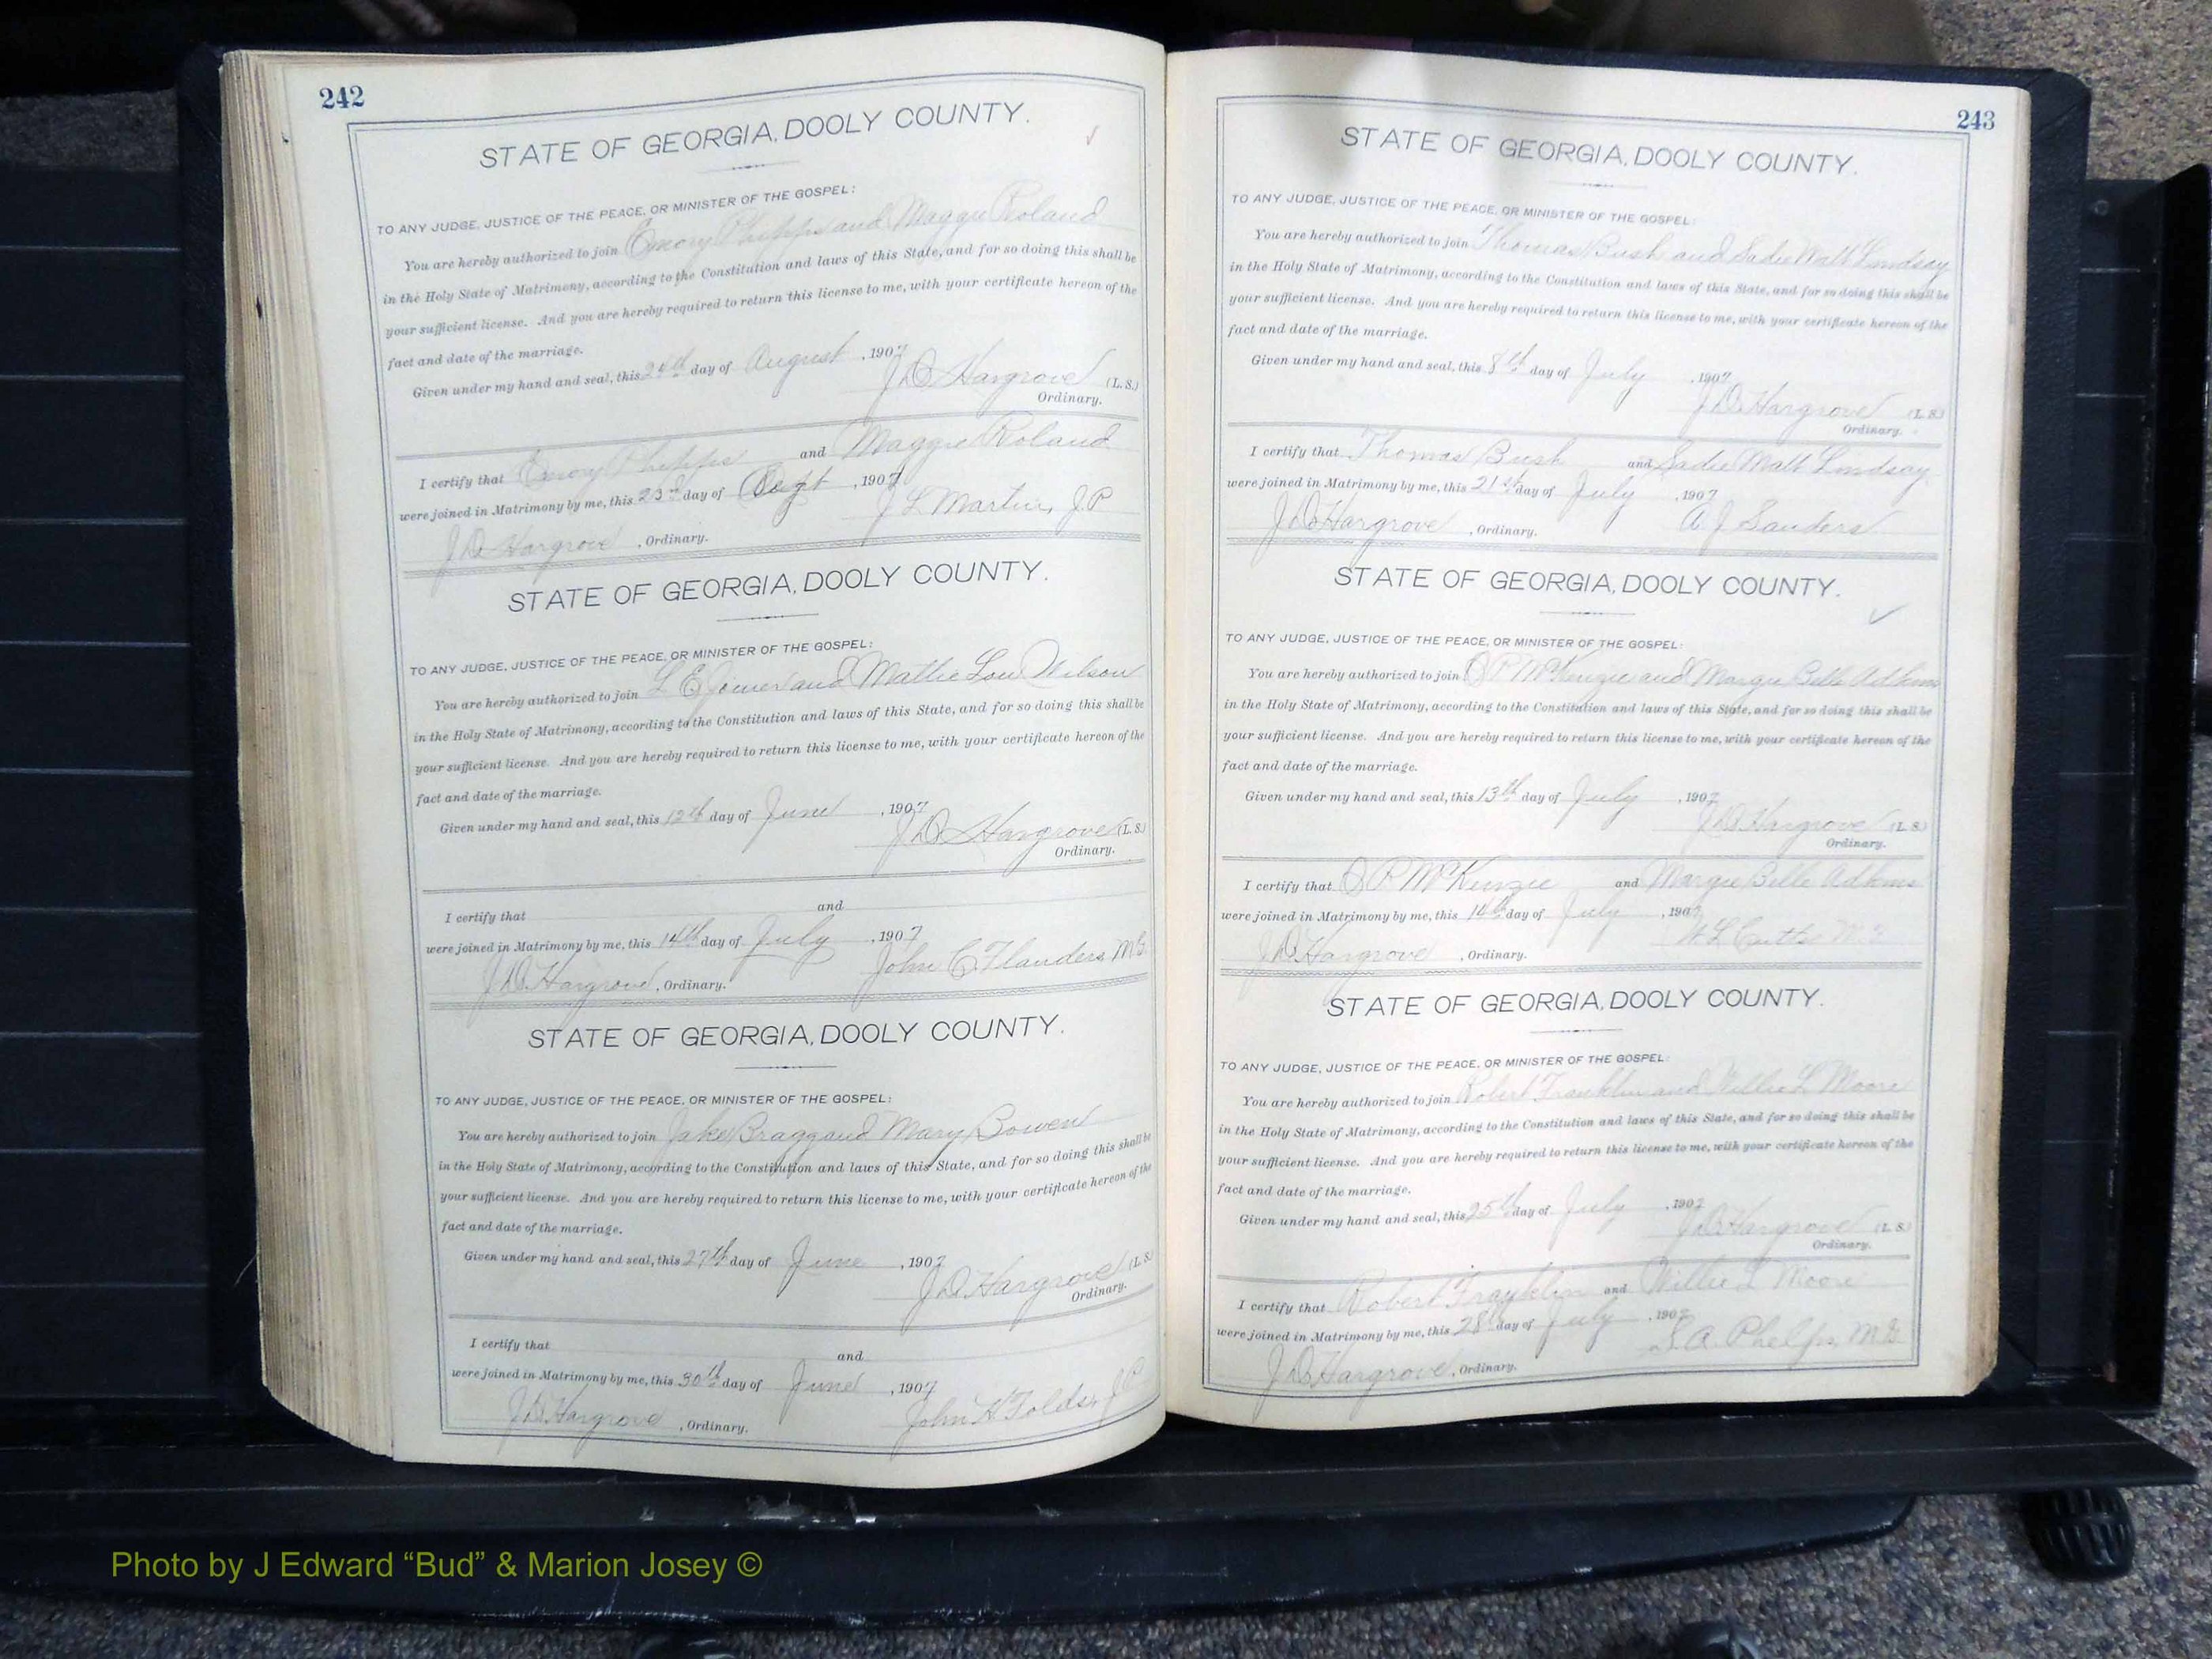 242
STATE OF GEORGIA, DOOLY COUNTY.
TO ANY JUDGE, JUSTICE OF THE PEACE, OR MINISTER OF THE GOSPEL:
You are hereby authorized to join Emory Phipps and Maggie Roland
in the Holy State of Matrimony, according to the Constitution and laws of this State, and for so doing this shall be
your sufficient license. And you are hereby required to return this license to me, with your certificate hereon of the
fact and date of the marriage.
Given under my hand and seal, this 24th day of August, 1907
J D Hargrove (L. S.)
Ordinary.
I certify that Emory Phipps and Maggie Roland
were joined in Matrimony by me, this 23rd day of Sept, 1907
J L Martin, J P
J D Hargrove, Ordinary.
STATE OF GEORGIA, DOOLY COUNTY.
TO ANY JUDGE, JUSTICE OF THE PEACE, OR MINISTER OF THE GOSPEL:
You are hereby authorized to join L E Joiner and Mattie Lou Wilson
in the Holy State of Matrimony, according to the Constitution and laws of this State, and for so doing this shall be
your sufficient license. And you are hereby required to return this license to me, with your certificate hereon of the
fact and date of the marriage.
Given under my hand and seal, this 12th day of June, 1907
J D Hargrove (L. S.)
Ordinary.
I certify that and
were joined in Matrimony by me, this 14th day of July, 1907
John C Flanders, M G
J D Hargrove, Ordinary.
STATE OF GEORGIA, DOOLY COUNTY.
TO ANY JUDGE, JUSTICE OF THE PEACE, OR MINISTER OF THE GOSPEL:
You are hereby authorized to join Jake Bragg and Mary Bowen
in the Holy State of Matrimony, according to the Constitution and laws of this State, and for so doing this shall be
your sufficient license. And you are hereby required to return this license to me, with your certificate hereon of the
fact and date of the marriage.
Given under my hand and seal, this 27th day of June, 1907
J D Hargrove (L. S.)
Ordinary.
I certify that and
were joined in Matrimony by me, this 30th day of June, 1907
John H Folds, J P
J D Hargrove, Ordinary.
243
STATE OF GEORGIA, DOOLY COUNTY.
TO ANY JUDGE, JUSTICE OF THE PEACE, OR MINISTER OF THE GOSPEL:
You are hereby authorized to join Thomas Bush and Sadie Matt Lindsay
in the Holy State of Matrimony, according to the Constitution and laws of this State, and for so doing this shall be
your sufficient license. And you are hereby required to return this license to me, with your certificate hereon of the
fact and date of the marriage.
Given under my hand and seal, this 8th day of July, 1907
J D Hargrove (L. S.)
Ordinary.
I certify that Thomas Bush and Sadie Matt Lindsay
were joined in Matrimony by me, this 21st day of July, 1907
A J Sanders
J D Hargrove, Ordinary.
STATE OF GEORGIA, DOOLY COUNTY.
TO ANY JUDGE, JUSTICE OF THE PEACE, OR MINISTER OF THE GOSPEL:
You are hereby authorized to join P McKenzie and Margie Belle Adkins
in the Holy State of Matrimony, according to the Constitution and laws of this State, and for so doing this shall be
your sufficient license. And you are hereby required to return this license to me, with your certificate hereon of the
fact and date of the marriage.
Given under my hand and seal, this 13th day of July, 1907
J D Hargrove (L. S.)
Ordinary.
I certify that P McKenzie and Margie Belle Adkins
were joined in Matrimony by me, this 14th day of July, 1907
M G
J D Hargrove, Ordinary.
STATE OF GEORGIA, DOOLY COUNTY.
TO ANY JUDGE, JUSTICE OF THE PEACE, OR MINISTER OF THE GOSPEL:
You are hereby authorized to join Robert Franklin and Willie L Moore
in the Holy State of Matrimony, according to the Constitution and laws of this State, and for so doing this shall be
your sufficient license. And you are hereby required to return this license to me, with your certificate hereon of the
fact and date of the marriage.
Given under my hand and seal, this 25th day of July, 1907
J D Hargrove (L. S.)
Ordinary.
I certify that Robert Franklin and Willie L Moore
were joined in Matrimony by me, this 28th day of July, 1907
A. Phelps, M G
J D Hargrove, Ordinary.
Photo by J Edward “Bud” & Marion Josey ©